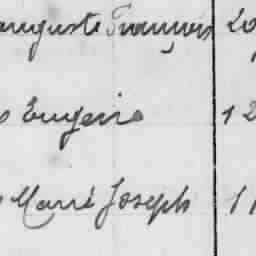 auguste François 20
Eugène 12
Marie Joseph 11